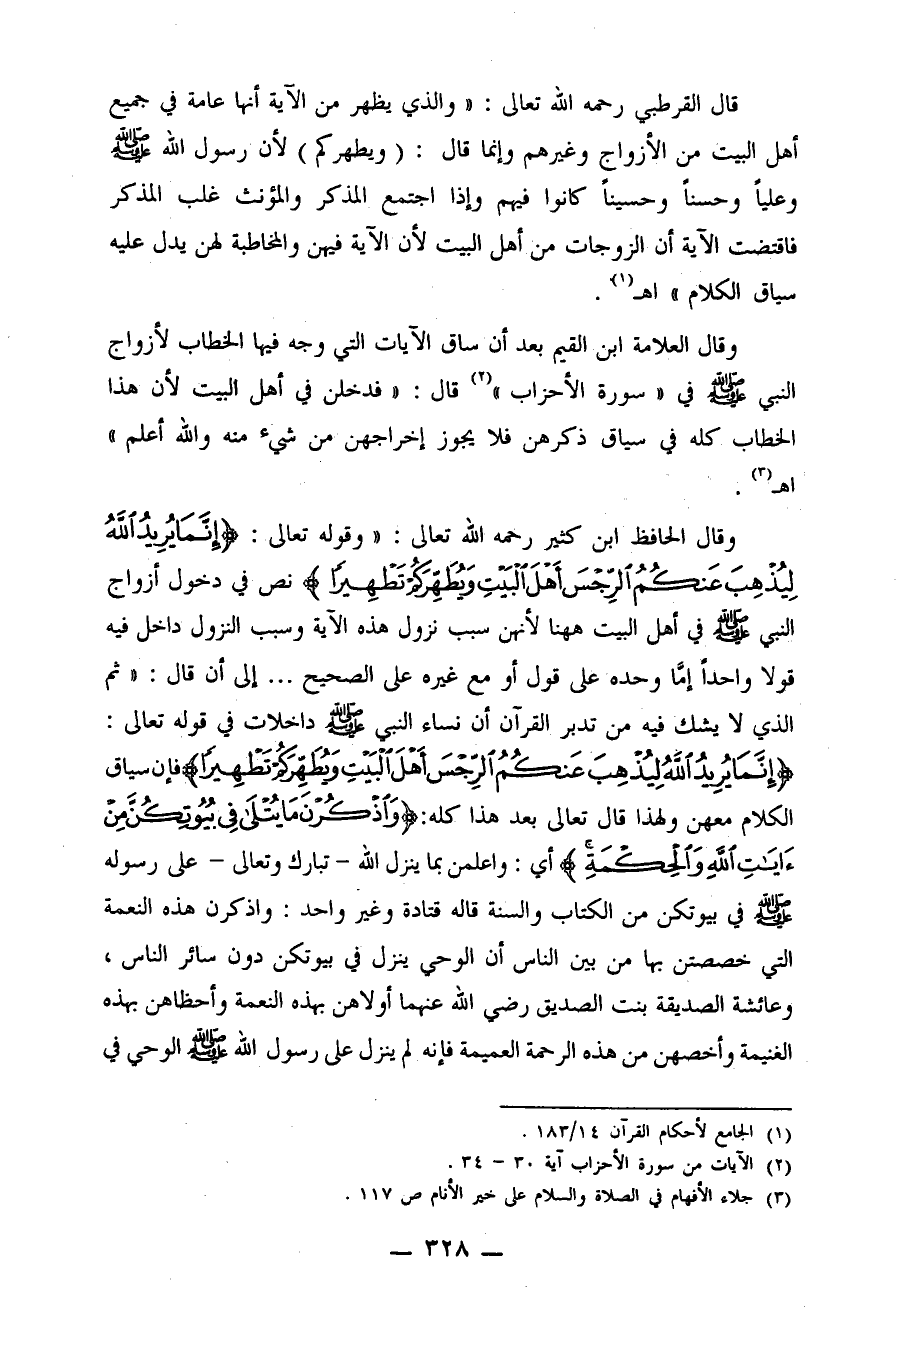 قال القرطبي رحمه الله تعالى : « والذي يظهر من الآية أنها عامة في جميع
أهل البيت من الأزواج وغيرهم وإنما قال : ( ويطهركم ) لأن رسول الله ﷺ
وعلياً وحسناً وحسيناً كانوا فيهم وإذا اجتمع المذكر والمؤنث غلب المذكر
فاقتضت الآية أن الزوجات من أهل البيت لأن الآية فيهن والمخاطبة لهن يدل عليه
سياق الكلام » اهـ(١) .
وقال العلامة ابن القيم بعد أن ساق الآيات التي وجه فيها الخطاب لأزواج
النبي ﷺ في « سورة الأحزاب »(٢) قال : « فدخلن في أهل البيت لأن هذا
الخطاب كله في سياق ذكرهن فلا يجوز إخراجهن من شيء منه والله أعلم »
اهـ(٣) .
وقال الحافظ ابن كثير رحمه الله تعالى : « وقوله تعالى : ﴿إِنَّمَا يُرِيدُ ٱللَّهُ
لِيُذْهِبَ عَنكُمُ ٱلرِّجْسَ أَهْلَ ٱلْبَيْتِ وَيُطَهِّرَكُمْ تَطْهِيرًا ﴾ نص في دخول أزواج
النبي ﷺ في أهل البيت ههنا لأنهن سبب نزول هذه الآية وسبب النزول داخل فيه
قولا واحداً إمَّا وحده على قول أو مع غيره على الصحيح ... إلى أن قال : « ثم
الذي لا يشك فيه من تدبر القرآن أن نساء النبي ﷺ داخلات في قوله تعالى :
﴿إِنَّمَا يُرِيدُ ٱللَّهُ لِيُذْهِبَ عَنكُمُ ٱلرِّجْسَ أَهْلَ ٱلْبَيْتِ وَيُطَهِّرَكُمْ تَطْهِيرًا﴾ فإن سياق
الكلام معهن ولهذا قال تعالى بعد هذا كله: ﴿وَٱذْكُرْنَ مَا يُتْلَىٰ فِى بُيُوتِكُنَّ مِنْ
ءَايَٰتِ ٱللَّهِ وَٱلْحِكْمَةِ ۚ ﴾ أي : واعلمن بما ينزل الله – تبارك وتعالى – على رسوله
ﷺ في بيوتكن من الكتاب والسنة قاله قتادة وغير واحد : واذكرن هذه النعمة
التي خصصتن بها من بين الناس أن الوحي ينزل في بيوتكن دون سائر الناس ،
وعائشة الصديقة بنت الصديق رضي الله عنهما أولاهن بهذه النعمة وأحظاهن بهذه
الغنيمة وأخصهن من هذه الرحمة العميمة فإنه لم ينزل على رسول الله ﷺ الوحي في
(١) الجامع لأحكام القرآن ١٨٣/١٤ .
(٢) الآيات من سورة الأحزاب آية ٣٠ – ٣٤ .
(٣) جلاء الأفهام في الصلاة والسلام على خير الأنام ص ١١٧ .
— ٣٢٨ —